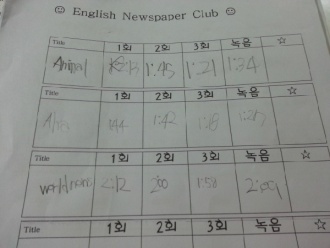 ☺ English Newspaper Club ☺
Title 1회 2회 3회 녹음 ☆
Animal 1:45 1:21 1:34
Title 1회 2회 3회 녹음 ☆
1:42
Title 1회 2회 3회 녹음 ☆
2:12 2:00 1:58 2:09
Title 1회 2회 3회 녹음 ☆